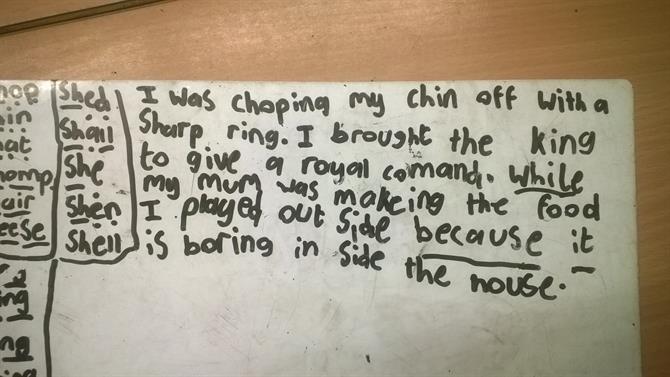 hop
hin
hat
homp
air
eese
Shed
Shall
She
Shen
Shell
I was choping my chin off with a
Sharp ring. I brought the king
to give a royal comand. while
my mum was makeing the food
I played out side because it
is boring in side the house.